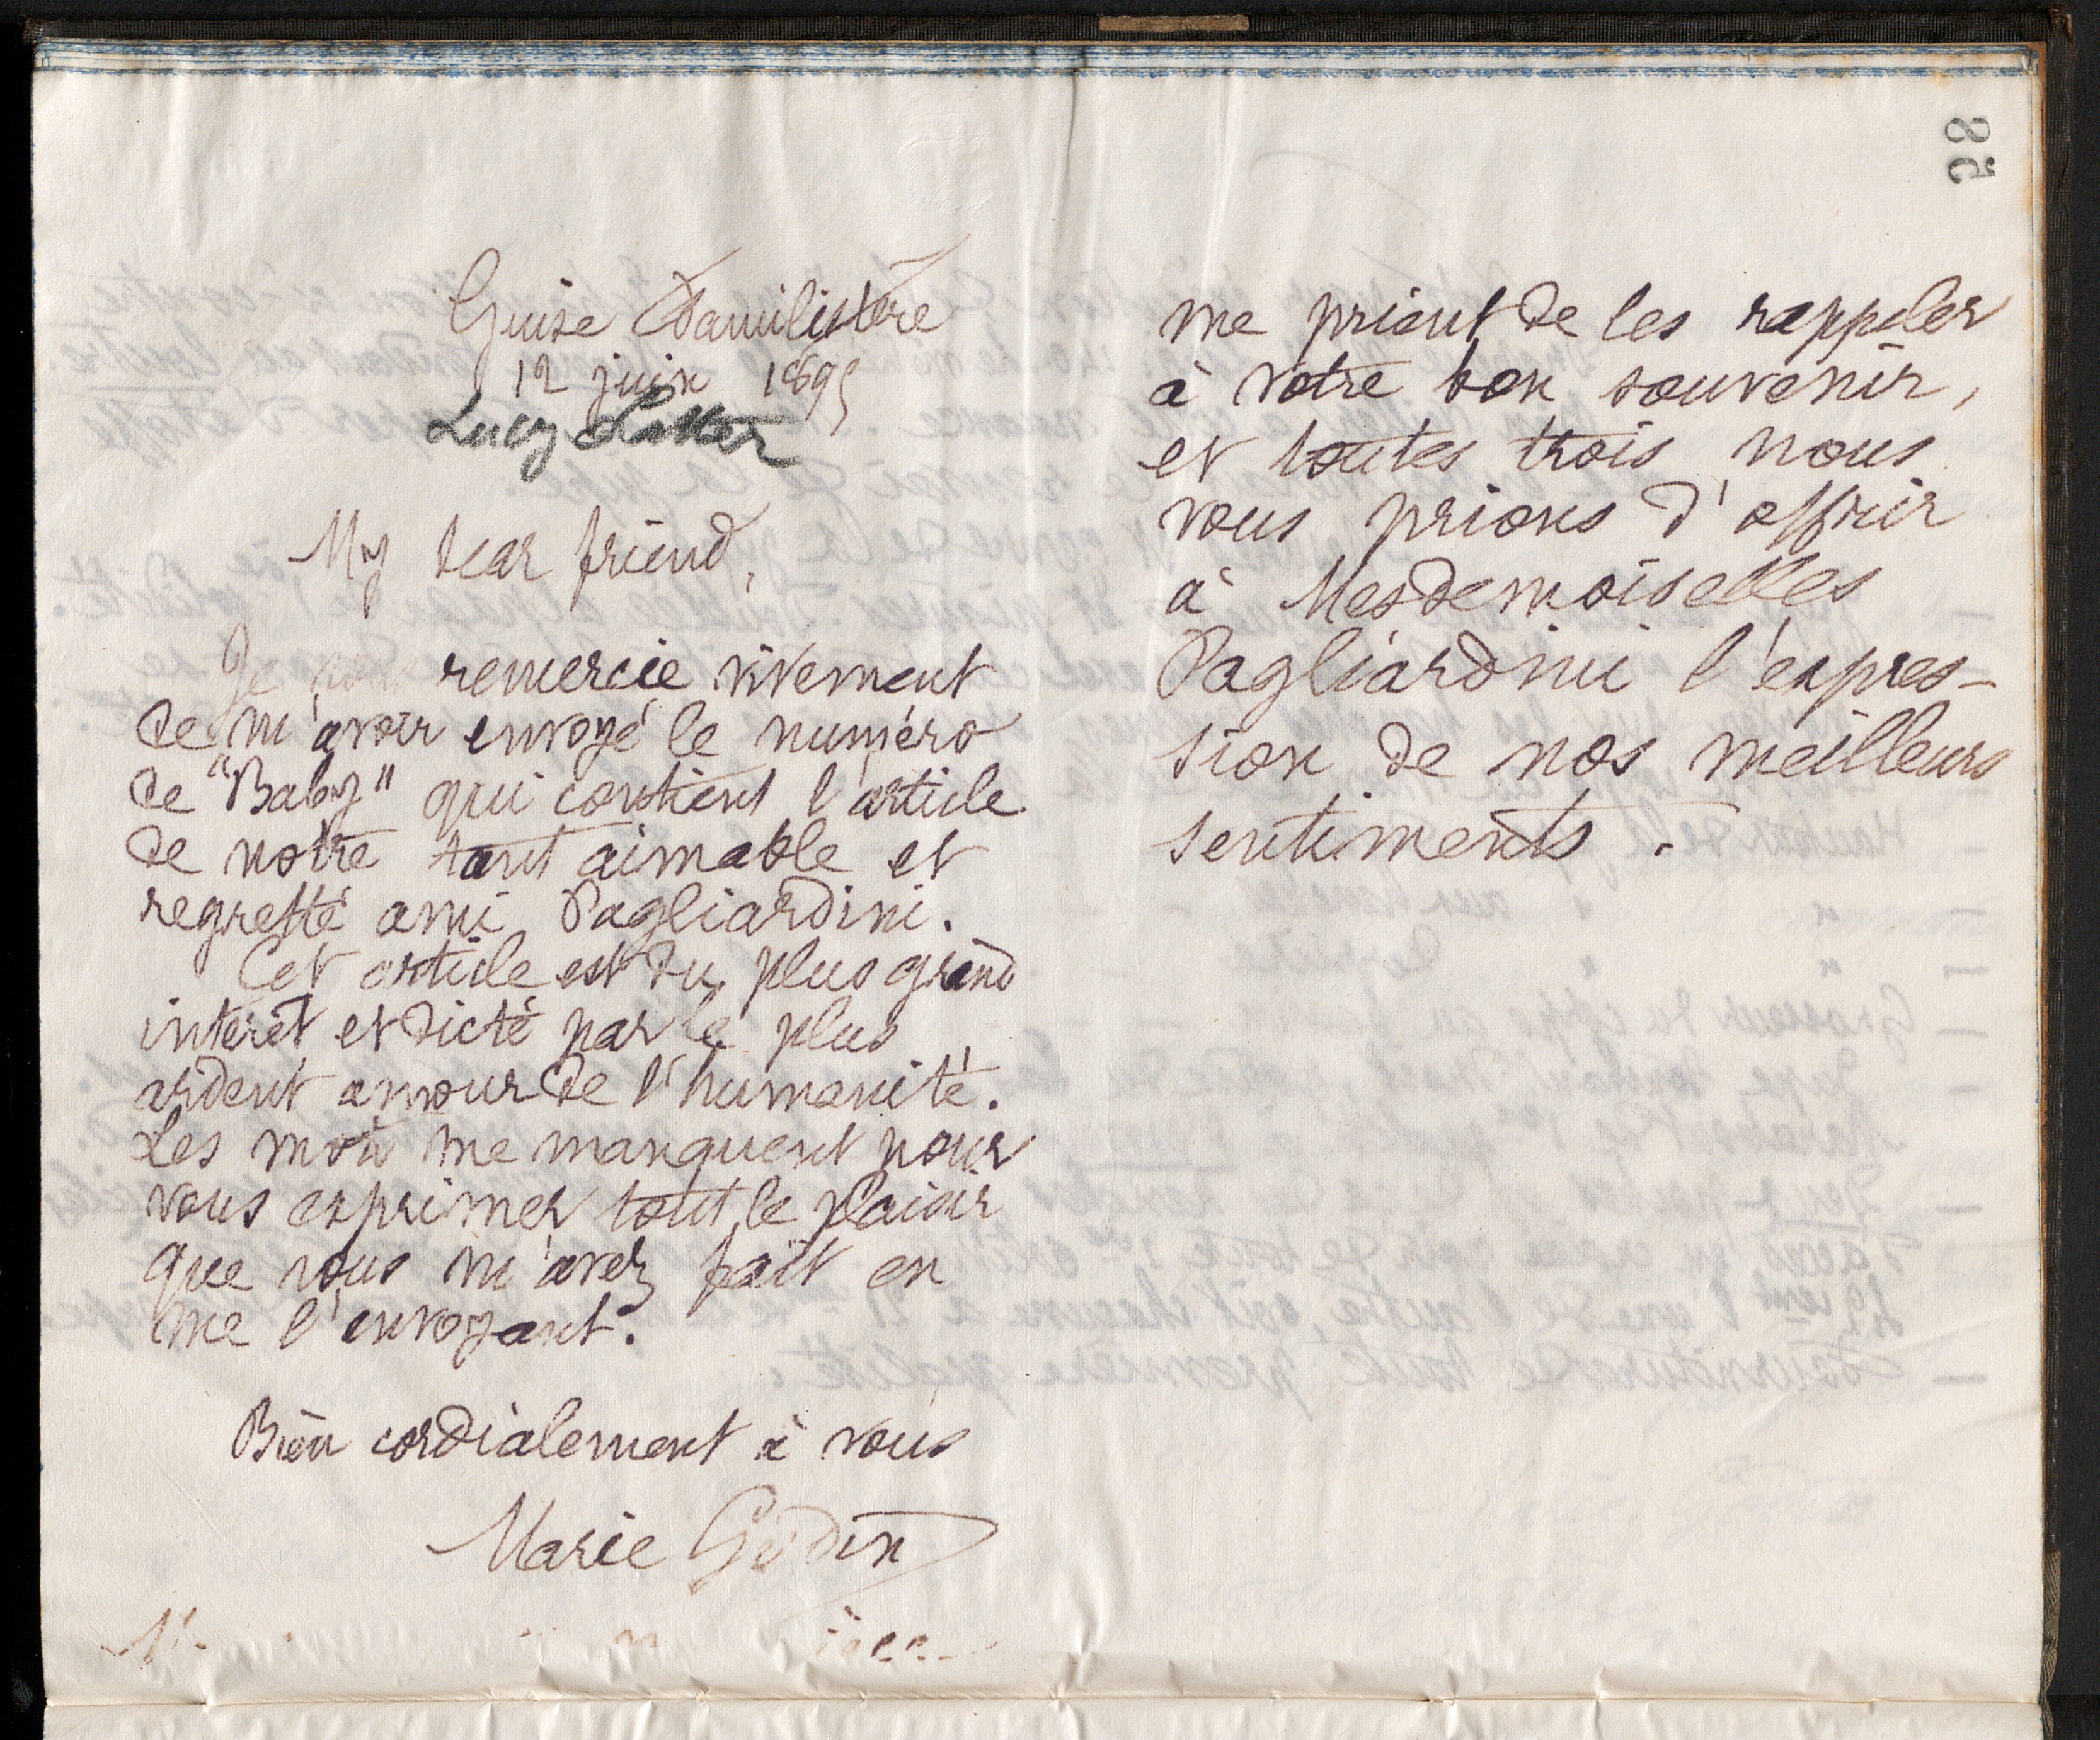 85
Guise Familistère
12 juin 1895
Lucy Latter
My dear friend,
Je vous remercie vivement
de m'avoir envoyé le numéro
de "Baby" qui contient l'article
de notre tant aimable et
regretté ami Pagliardini.
Cet article est du plus grand
intérêt et dicté par le plus
ardent amour de l'humanité.
Les mots me manquent pour
vous exprimer tout le plaisir
que vous m'avez fait en
me l'envoyant.
Bien cordialement à vous
Marie Godin
me priant de les rappeler
à votre bon souvenir,
et toutes trois nous
vous prions d'offrir
à Mesdemoiselles
Pagliardini l'expres-
sion de nos meilleurs
sentiments.